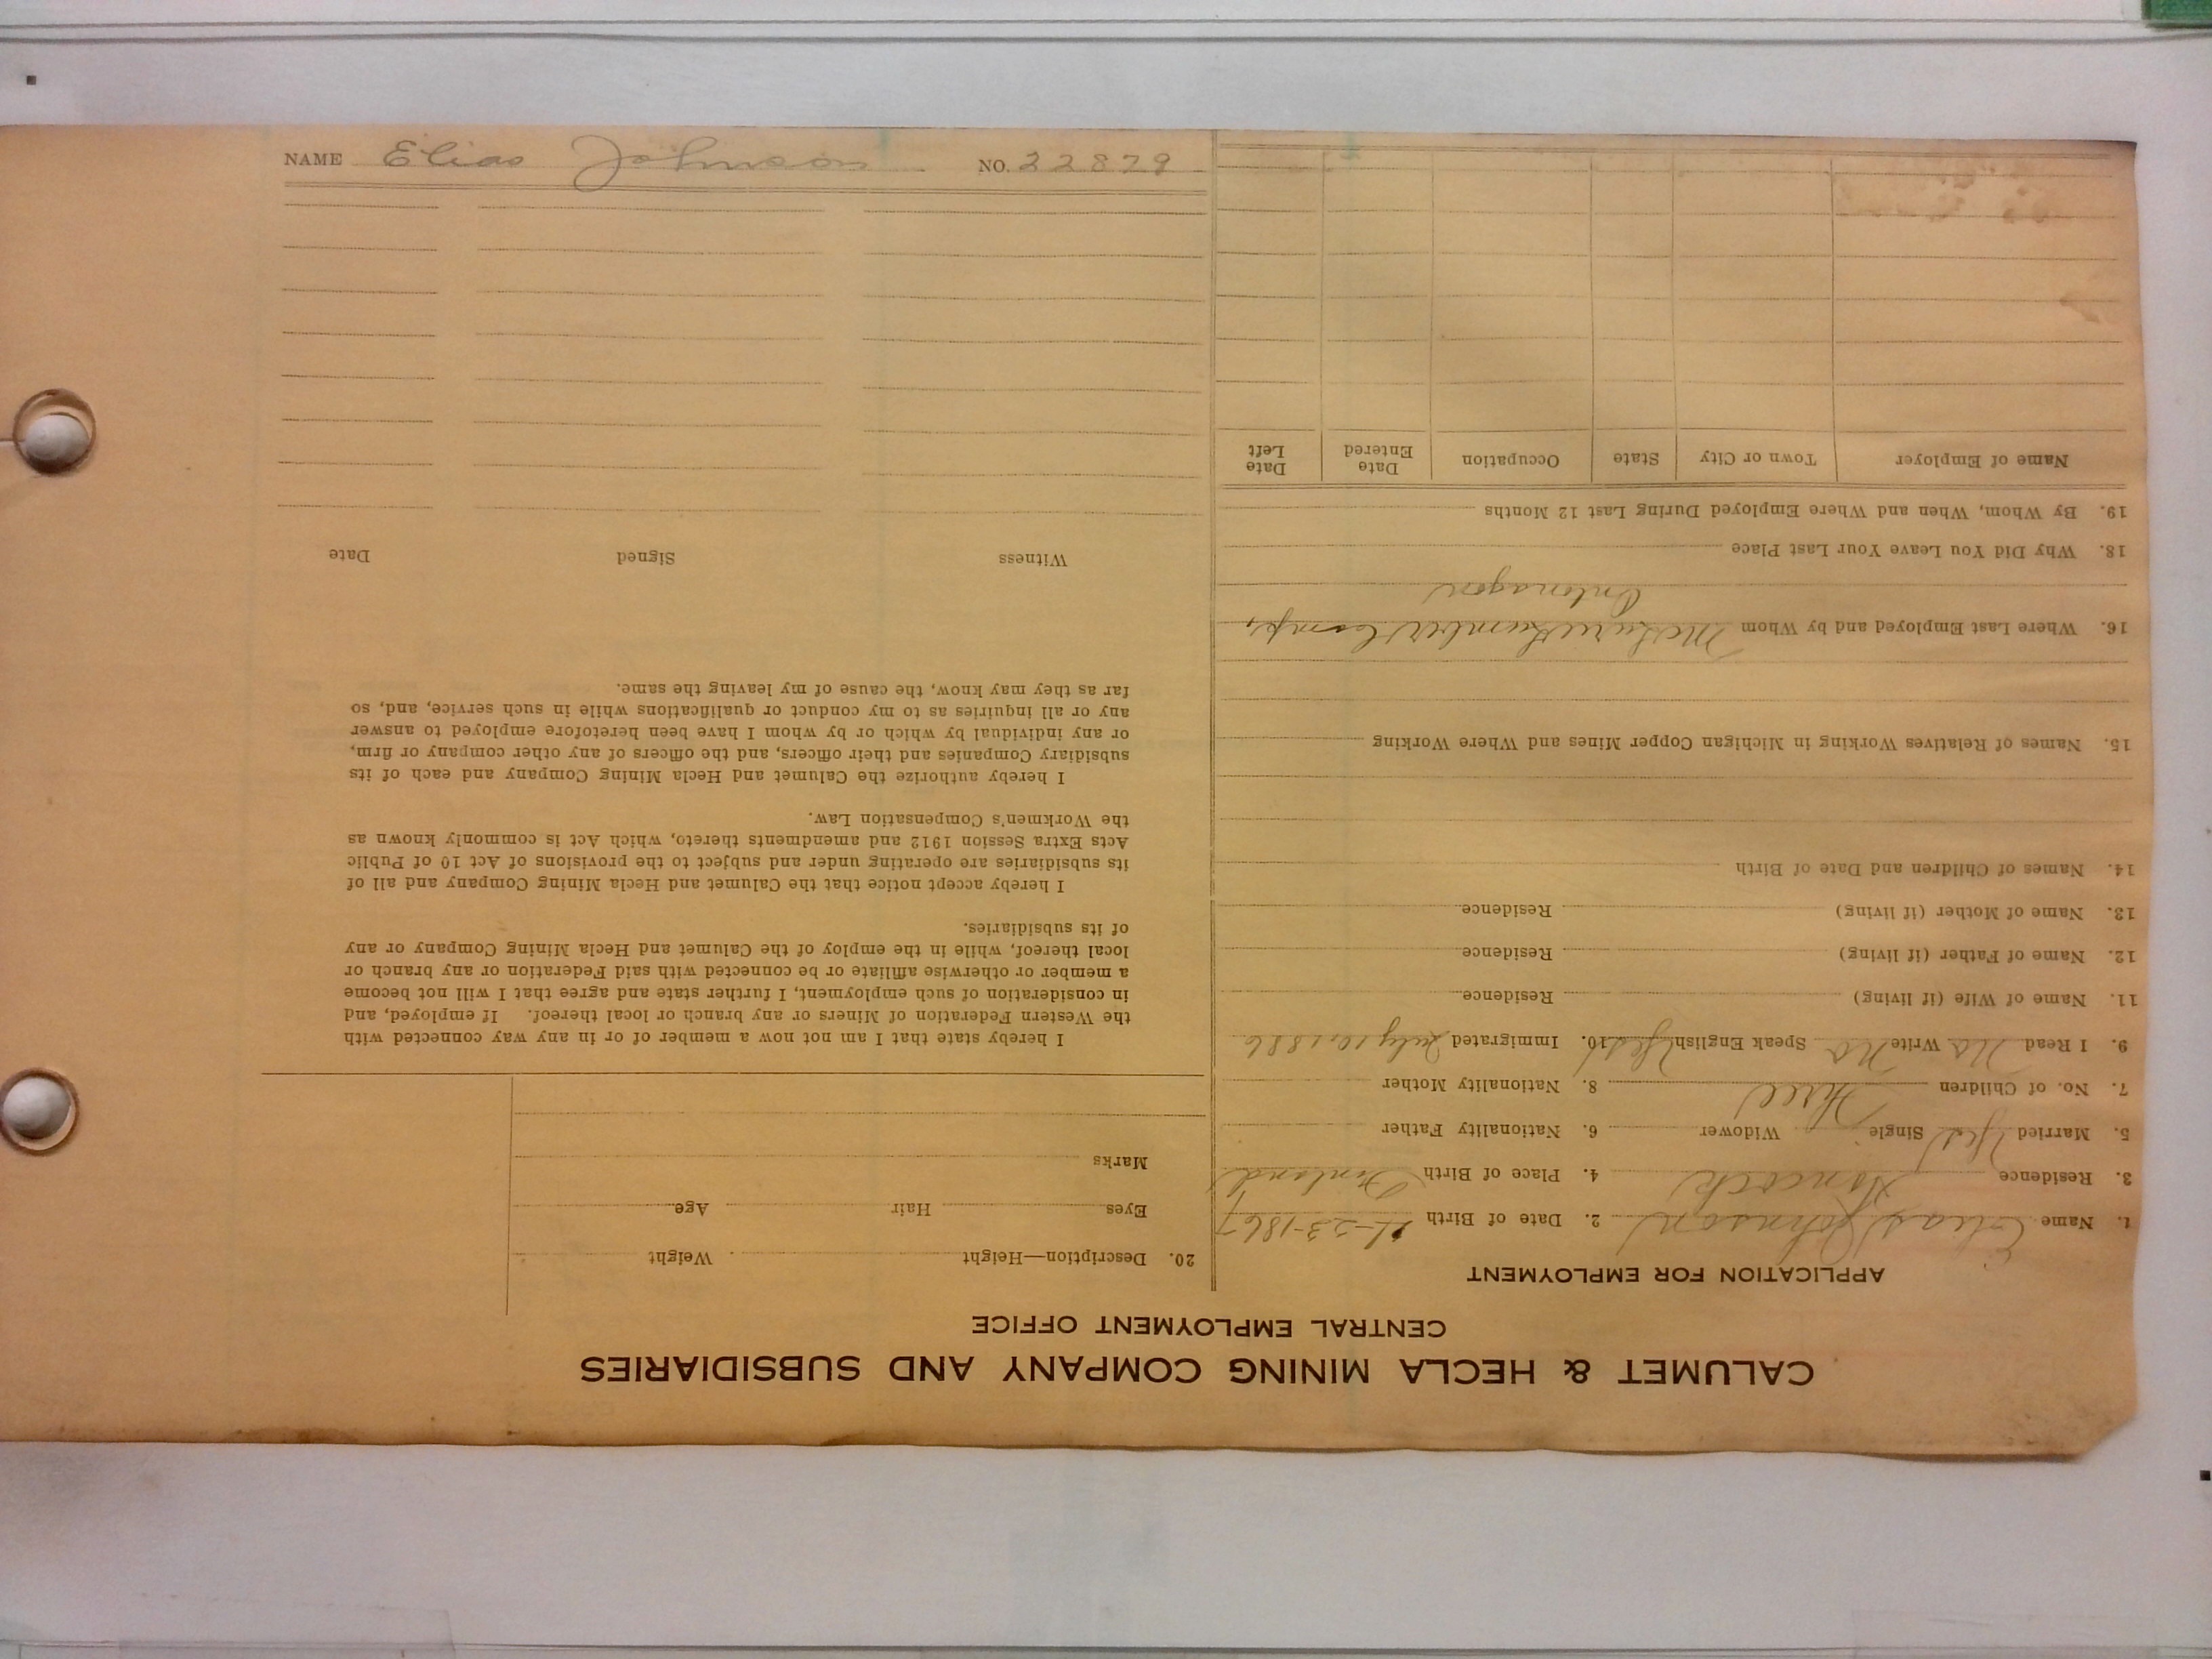 CALUMET & HECLA MINING COMPANY AND SUBSIDIARIES
CENTRAL EMPLOYMENT OFFICE
APPLICATION FOR EMPLOYMENT
1. Name Elias Johnson 2. Date of Birth -23-1867
3. Residence Hancock 4. Place of Birth Finland
5. Married Yes Single Widower 6. Nationality Father
7. No. of Children Three 8. Nationality Mother
9. I Read No Write No Speak English Yes 10. Immigrated July 10, 1886
11. Name of Wife (if living) Residence
12. Name of Father (if living) Residence
13. Name of Mother (if living) Residence
14. Names of Children and Date of Birth
15. Names of Relatives Working in Michigan Copper Mines and Where Working
16. Where Last Employed and by Whom Lumber Camp,
Ontonagon
18. Why Did You Leave Your Last Place
19. By Whom, When and Where Employed During Last 12 Months
Name of Employer Town or City State Occupation Date Entered Date Left
20. Description—Height Weight
Eyes Hair Age
Marks
I hereby state that I am not now a member of or in any way connected with
the Western Federation of Miners or any branch or local thereof. If employed, and
in consideration of such employment, I further state and agree that I will not become
a member or otherwise affiliate or be connected with said Federation or any branch or
local thereof, while in the employ of the Calumet and Hecla Mining Company or any
of its subsidiaries.
I hereby accept notice that the Calumet and Hecla Mining Company and all of
its subsidiaries are operating under and subject to the provisions of Act 10 of Public
Acts Extra Session 1912 and amendments thereto, which Act is commonly known as
the Workmen's Compensation Law.
I hereby authorize the Calumet and Hecla Mining Company and each of its
subsidiary Companies and their officers, and the officers of any other company or firm,
or any individual by which or by whom I have been heretofore employed to answer
any or all inquiries as to my conduct or qualifications while in such service, and, so
far as they may know, the cause of my leaving the same.
Witness Signed Date
NAME Elias Johnson NO. 22879